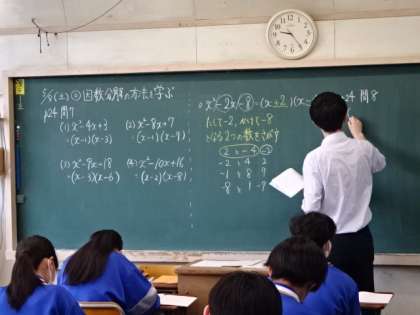 5/9(土) 因数分解の方法を学ぶ
p24 問7
(1) x²-4x+3
=(x-1)(x-3)
(2) x²-8x+7
=(x-1)(x-7)
(3) x²-9x+18
=(x-3)(x-6)
(4) x²-10x+16
=(x-2)(x-8)
x²-2x-8=(x+2)(x
たして-2, かけて-8
となる2つの数をさがす
2 -4
-2 4 2
-1 8 7
-8 1 -7
問8